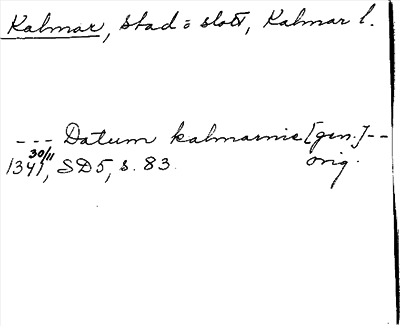 Kalmar, stad o slott, Kalmar l.
--- Datum kalmarnie [gen.] --
1341 30/11, SD5, s. 83. orig.